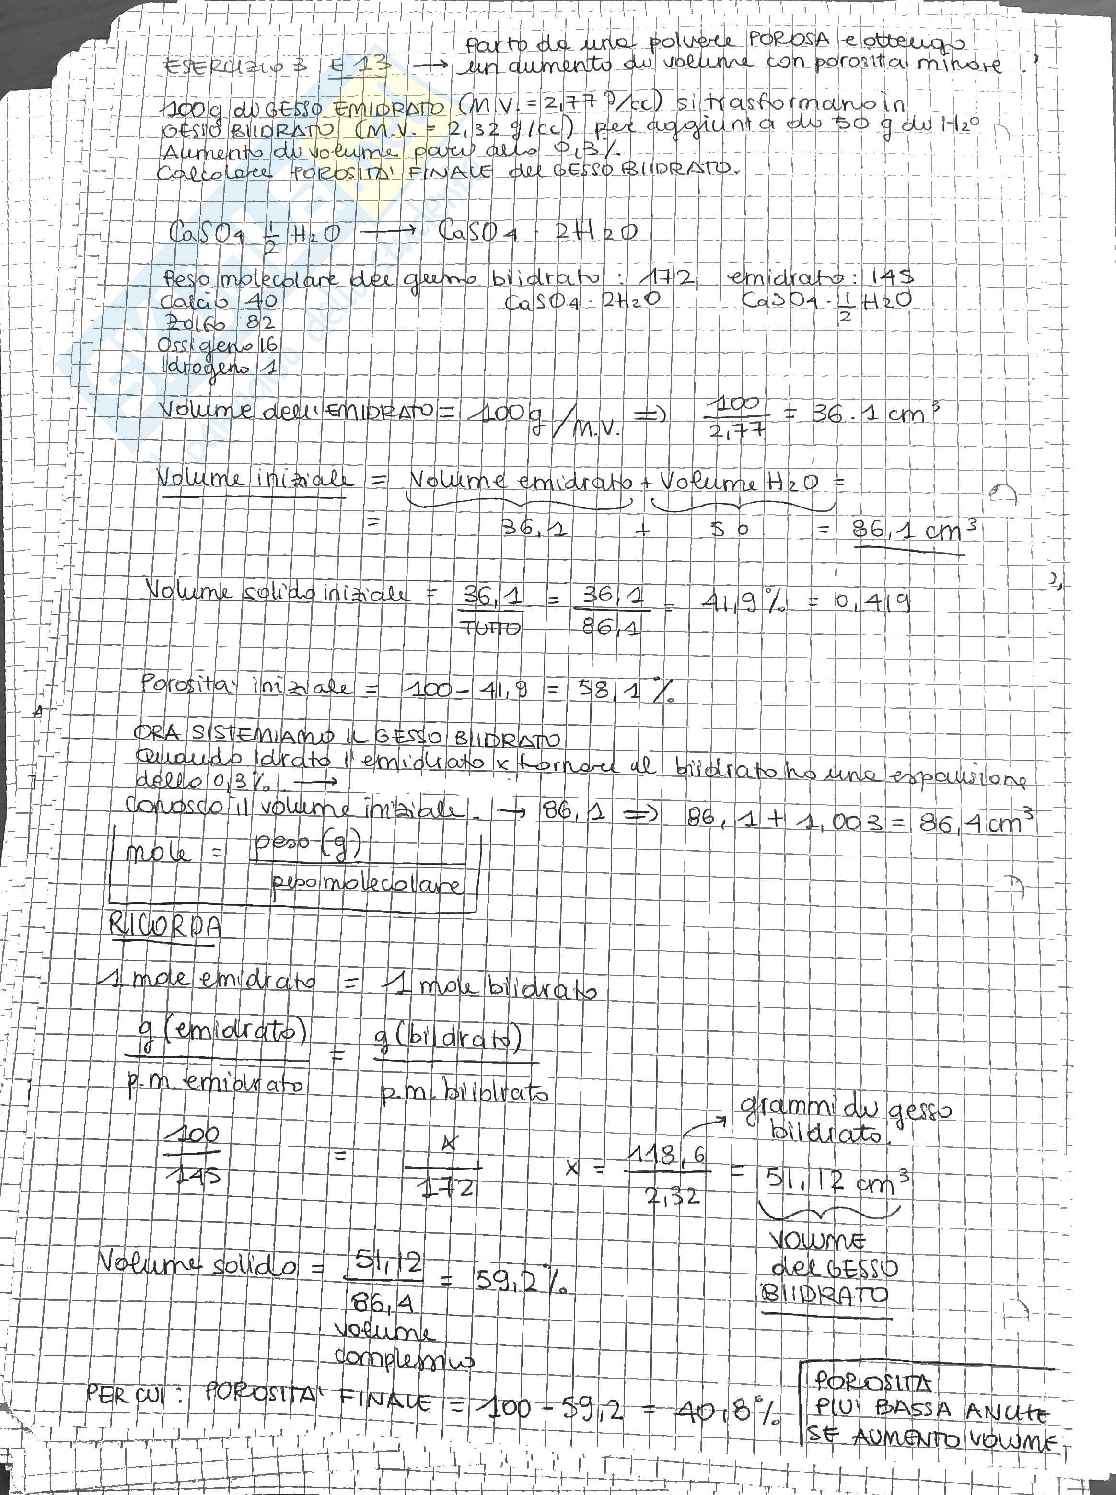 parto da una polvere POROSA e ottengo
ESERCIZIO 3 E 13 → un aumento di volume con porosità minore.
100g di GESSO EMIDRATO (M.V. = 2,77 g/cc) si trasformano in
GESSO BIIDRATO (M.V. = 2,32 g/cc) per aggiunta di 50 g di H2O
Aumento di volume pari allo 0,3%.
Calcolare POROSITA' FINALE del GESSO BIIDRATO.
CaSO4 1/2 H2O → CaSO4 · 2H2O
Peso molecolare del gesso biidrato: 172 emidrato: 145
Calcio 40 CaSO4 · 2H2O CaSO4 · 1/2 H2O
Zolfo 32
Ossigeno 16
Idrogeno 1
Volume dell'EMIDRATO = 100g/M.V. ⇒ 100/2,77 = 36.1 cm³
Volume iniziale = Volume emidrato + Volume H2O =
= 36,1 + 50 = 86,1 cm³
Volume solido iniziale = 36,1/TUTTO = 36,1/86,1 = 41,9% = 0,419
Porosità iniziale = 100 - 41,9 = 58,1%
ORA SISTEMIAMO IL GESSO BIIDRATO
Quando idrato l'emidrato x tornare al biidrato ho una espansione
dello 0,3% →
conosco il volume iniziale. → 86,1 ⇒ 86,1 + 1,003 = 86,4 cm³
mole = peso (g)
peso molecolare
RICORDA
1 mole emidrato = 1 mole biidrato
g (emidrato) = g (biidrato)
p.m. emidrato p.m. biidrato
grammi di gesso
biidrato.
100/145 = x/172 x = 118,6/2,32 = 51,12 cm³
VOLUME
del GESSO
BIIDRATO
Volume solido = 51,12/86,4 = 59,2%
volume
complessivo
PER CUI: POROSITA' FINALE = 100 - 59,2 = 40,8%
POROSITA
PIU' BASSA ANCHE
SE AUMENTO VOLUME